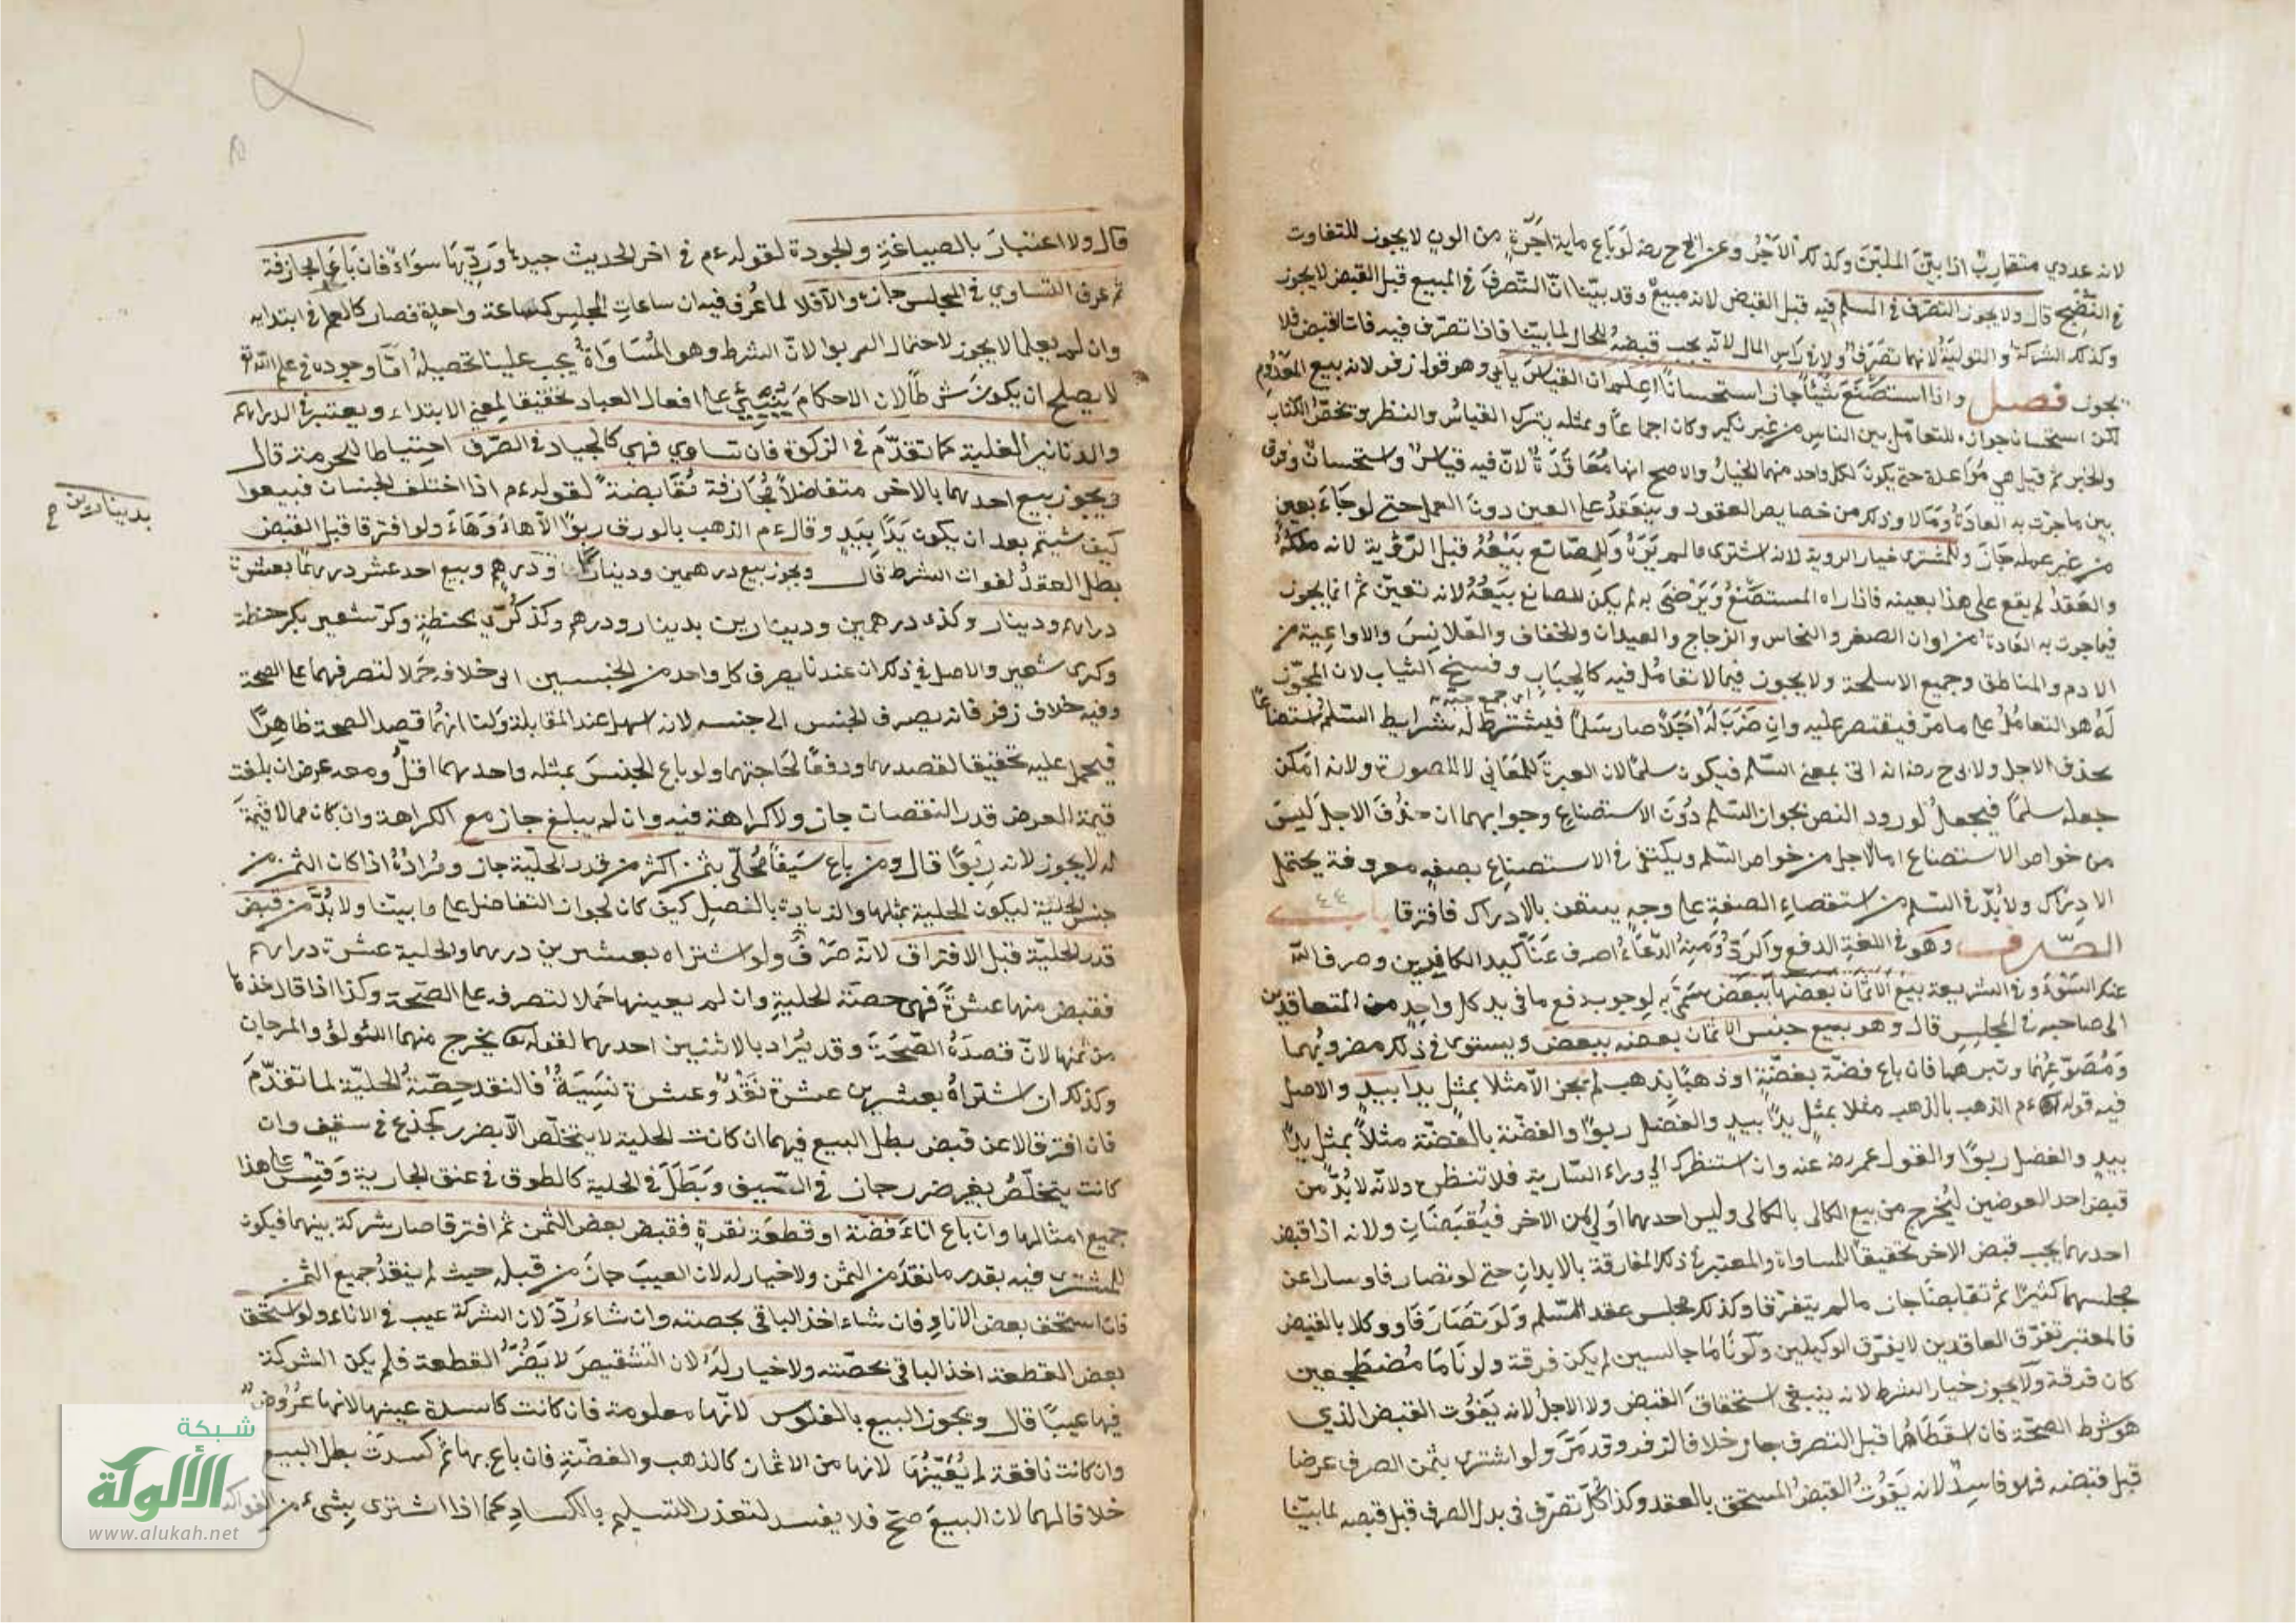 لانه عددي متقارب اذا بيّن الملبن وكذلك الآجر وعن ابي ح رضه لو باع ماية آجرة من اتون لا يجوز للتفاوت
في النضج قال ولا يجوز التصرف في المسلم فيه قبل القبض لانه مبيع وقد بيّنا انّ التصرف في المبيع قبل القبض لا يجوز
وكذلك الشركة والتولية لانهما تصرف ولا في راس المال لانه يجب قبضه للحال لما بيّنا فاذا تصرّف فيه فات القبض فلا
يجوز فصل واذا استصنع شيئًا جاز استحسانًا اعلم ان القياس يابى وهو قول زفر لانه بيع المعدوم
لكن استحسان جوازه للتعامل بين الناس من غير نكير وكان اجماعاً وبمثله يترك القياس والنظر وتخصّ الكتاب
والخبر ثم قيل هي مواعدة حتى يكون لكل واحد منهما الخيار والاصح انها معاقدة لانّ فيه قياس واستحسان وفرق
بين ما جرت به العادة وما لا وذلك من خصايص العقود وينعقد على العين دون العمل حتى لو جاء بعين
من غير عمله جاز وللمشتري خيار الروية لانه اشترى ما لم يره وللصانع بيعه قبل الرؤية لانه ملكه
والعقد لم يقع على هذا بعينه فاذا راه المستصنع ويرضى به لم يكن للصانع بيعه لانه تعيّن ثم انما يجوز
فيما جرت به العادة من اوان الصفر والنحاس والزجاج والعيدان والخفاف والقلانس والاواعية من
الادم والمناطق وجميع الاسلحة ولا يجوز فيما لا تعامل فيه كالجباب ونسيج الثياب لان المجوّز
اي جمع جبّة
له هو التعامل على ما مرّ فيقتصر عليه وان ضرب له اجلا صار سلماً فيشترط له شرايط السلم استصناعًا
بحذف الاجل ولابي ح رضه انه اتى بمعنى السّلم فيكون سلمًا لان العبرة للمعاني لا للصورة ولانه امكن
جعله سلمًا فيجعل لورود النص بجواز السّلم دون الاستصناع وجوابهما ان حذف الاجل ليس
من خواص الاستصناع اما الاجل من خواص السّلم ويكتفى في الاستصناع بصفة معروفة يحتمل
الادراك ولا بدّ في السّلم من استقصاء الصفة على وجه يتيقن بالادراك فافترقا باب
الصّرف وهو في اللغة الدفع والردّ ومنه الدّعاء اصرف عنّا كيد الكافرين وصرف الله
عنك السّوء وفي الشريعة بيع الاثمان بعضها ببعض سمّي به لوجوب دفع ما في يد كل واحد من المتعاقدين
الى صاحبه في المجلس قال وهو بيع جنس الاثمان بعضه ببعض ويستوي في ذلك مضروبهما
ومصوغهما وتبرهما فان باع فضة بفضّة او ذهبًا بذهب لم يجز الا مثلا بمثل يدا بيد والاصل
فيه قوله ءم الذهب بالذهب مثلا بمثل يدًا بيد والفضل ربوًا والفضّة بالفضّة مثلاً بمثل يدًا
بيد والفضل ربوًا والقول عمر رضه عنه وان استنظرك الى وراء السّارية فلا تنظره ولانّه لا بدّ من
قبض احد العوضين ليخرج من بيع الكالي بالكالي وليس احدهما اولى من الاخر فيقبضان ولانه اذا قبض
احدهما يجب قبض الاخر تحقيقًا للمساواة والمعتبر في ذلك المفارقة بالابدان حتى لو تصارفا وسارا عن
مجلسهما كثيرًا ثم تقابضا جاز ما لم يتفرّقا وكذلك مجلس عقد السّلم ولو تصارفا ووكلا بالقبض
فالمعتبر تفرّق العاقدين لا يفرّق الوكيلين وكونا ماجالسين لم يكن فرقة ولو ناما مضطجعين
كان فرقة ولا يجوز خيار الشرط لانه ينبغي استحقاق القبض ولا الاجل لانه يفوت القبض الذي
هو شرط الصحّة فان اسقطاهما قبل التصرف جاز خلافا لزفر وقد مرّ ولو اشترى بثمن الصرف عرضا
قبل قبضه فهو فاسد لانه يفوت القبض المستحق بالعقد وكذا كلّ تصرّف في بدل الصرف قبل قبضه لما بيّنا
قال ولا اعتبار بالصياغة والجودة لقوله ءم في اخر الحديث جيدها ورديها سواء فان باعها مجازفة
ثم عرف التساوي في المجلس جاز والا فلا لما عرف فيه ان ساعات المجلس كساعة واحدة فصار كالعلم في ابتدايه
وان لم يعلما لا يجوز لاحتمال الربوا لانّ الشرط وهو المساواة يجب علينا تحصيله امّا وجوده في علم الله تع
لا يصلح ان يكون شرطًا لان الاحكام يبتني على افعال العباد تحقيقا لمعنى الابتداء ويعتبر في الدراهم
والدنانير الغلبة كما تقدّم في الزكوة فان تساوي فهي كالجياد في الصّرف احتياطا للحرمة قال
ويجوز بيع احدهما بالاخر متفاضلاً مجازفة تقابضة لقوله ءم اذا اختلف الجنسان فبيعوا
كيف شيتم بعد ان يكون يدًا بيد وقال ءم الذهب بالورق ربوًا الا هاء وهاء ولو افترقا قبل القبض
بطل العقد لفوات الشرط قال ويجوز بيع درهمين ودينار ودرهم وبيع احد عشر درهمًا بعشرة
بدينارين ح
دراهم ودينار وكذى درهمين ودينارين بدينار ودرهم وكذا كرّي بحنطة وكر شعير بكر حنطة
وكرى شعير والاصل في ذلك ان عندنا يصرف كل واحد من الجنسين الى خلافه حملا لتصرفهما على الصحة
وفيه خلاف زفر فانه يصرف الجنس الى جنسه لانه اسهل عند المقابلة ولنا انهما قصد الصحة ظاهرًا
فيحمل عليه تحقيقا لقصدهما ودفعًا لحاجتهما ولو باع الجنس بمثله واحدهما اقل ومعه عرض ان بلغت
قيمة العرض قدر النقصان جاز ولا كراهة فيه وان لم يبلغ جاز مع الكراهة وان كان مما لا قيمة
له لا يجوز لانه ربوًا قال ومن باع سيفًا محلّى بثمن اكثر من قدر الحلية جاز ومراده اذا كان الثمن من
جنس الحلية ليكون الحلية بمثلها والزيادة بالفصل كيف كان لجواز التفاضل على ما بيّنا ولا بدّ من قبض
قدر الحليّة قبل الافتراق لانّه صرف ولو اشتراه بعشرين درهما والحلية عشرة دراهم
فقبض منها عشرةً فهي حصّة الحلية وان لم يعينها حملا لتصرفه على الصّحة وكذا اذا قال خذها
من ثمنها لانّ قصدَهُ الصّحة وقد يُراد بالاثنين احدهما لقوله تع يخرج منهما اللؤلؤ والمرجان
وكذلك ان اشتراه بعشرين عشرة نقد وعشرة نسيئة فالنقد حصّة الحليّة لما تقدّم
فان افترقا لا عن قبض بطل البيع فيهما ان كانت الحلية لا يتخلّص الّا بضرر كجذع في سقيف وان
كانت يتخلّص بغير ضرر جاز في السّيف وبطل في الحلية كالطوق في عنق الجارية وقس على هذا
جميع امثالها وان باع اناء فضّة او قطعة نقرة فقبض بعض الثمن ثم افترقا صار شركة بينهما فيكون
للمشتري فيه بقدر ما نقد من الثمن ولا خيار له لان العيب جاز من قبله حيث لم ينقد جميع الثمن
فان استحق بعض الاناء فان شاء اخذ الباقي بحصته وان شاء ردّ لان الشركة عيب في الاناء ولو استحق
بعض القطعة اخذ الباقي بحصّته ولا خيار له لان التشقيص لا يضرّ القطعة فلم يكن الشركة
فيها عيبًا قال ويجوز البيع بالفلوس لانّها معلومة فان كانت كاسدة عينها لانها عروض
وان كانت نافقة لم يُعيّنها لانها من الاثمان كالذهب والفضّة فان باع بها ثم كسدت بطل البيع
خلافا لهما لان البيع صحّ فلا يفسد لتعذر التسليم بالكساد كما اذا اشترى بشيء من الفواكه
شبكة
الألوكة
www.alukah.net